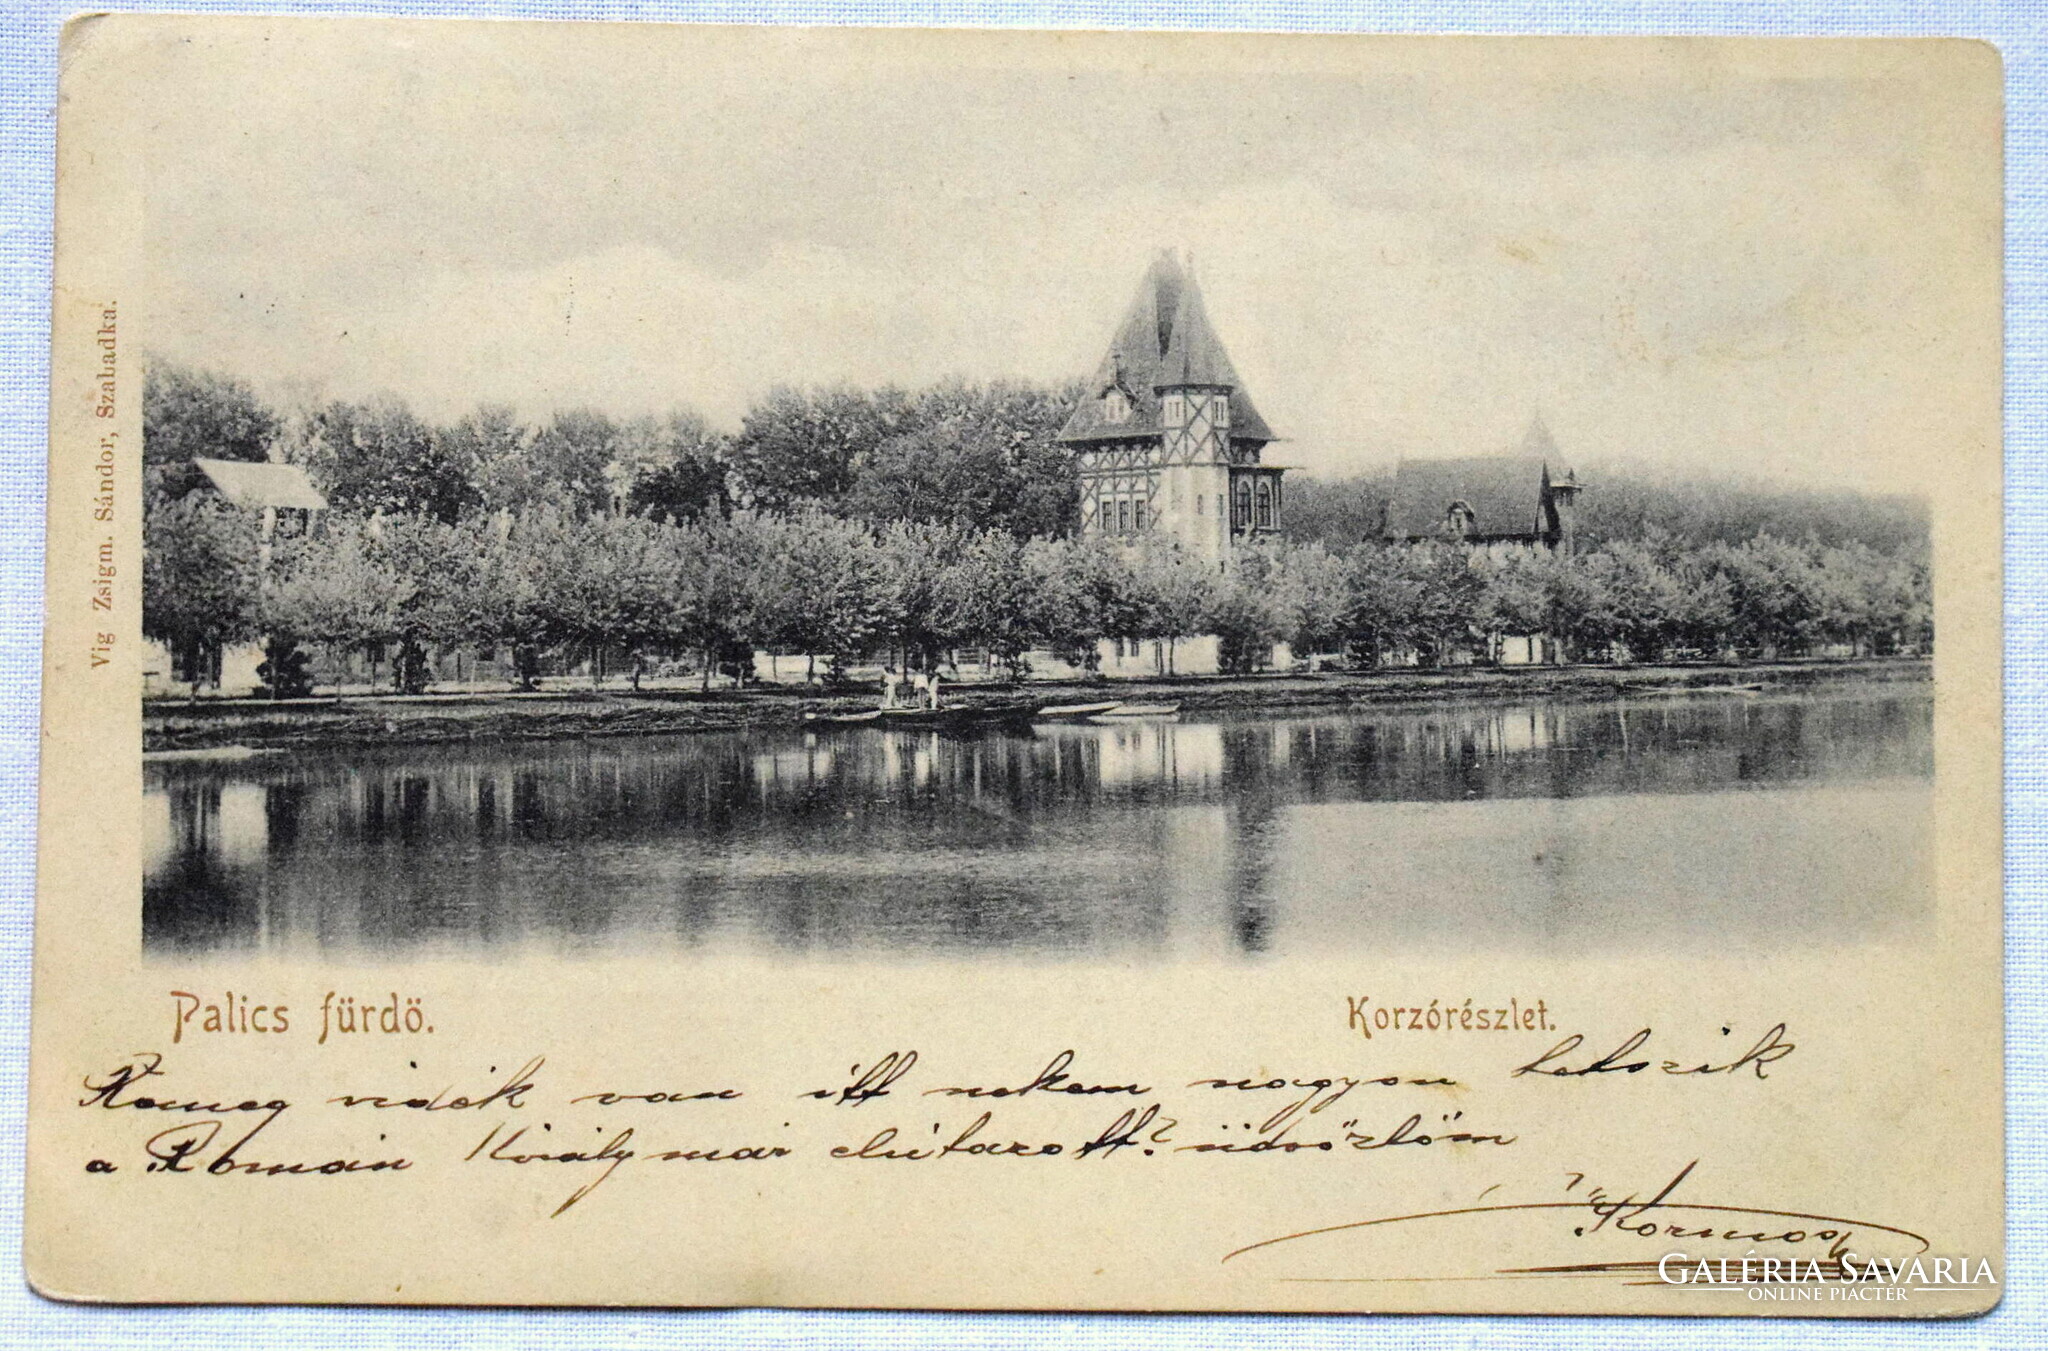 Vig Zsigm. Sándor, Szabadka.
Palics fürdő.
Korzórészlet.
vidék van itt nekem nagyon tetszik
a Román Király már elutazott? üdvözlöm
Kormos
GALÉRIA SAVÁRIA
ONLINE PIACTÉR